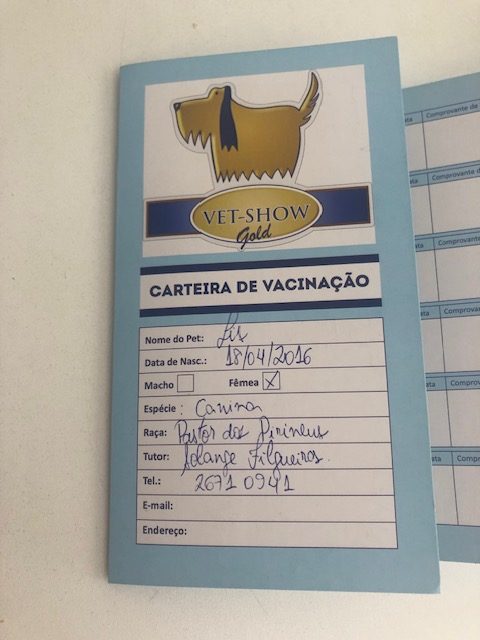 VET-SHOW
Gold
CARTEIRA DE VACINAÇÃO
Nome do Pet: Lis
Data de Nasc.: 18/04/2016
Macho Fêmea X
Espécie: Canina
Raça: Pastor dos Pirineus
Tutor: Solange Filgueiras
Tel.: 2671 0941
E-mail:
Endereço:
ata Comprovante de
ata Comprovante d
ata Comprovante d
ata Comprovante
ata Comprovante
ata Comprov